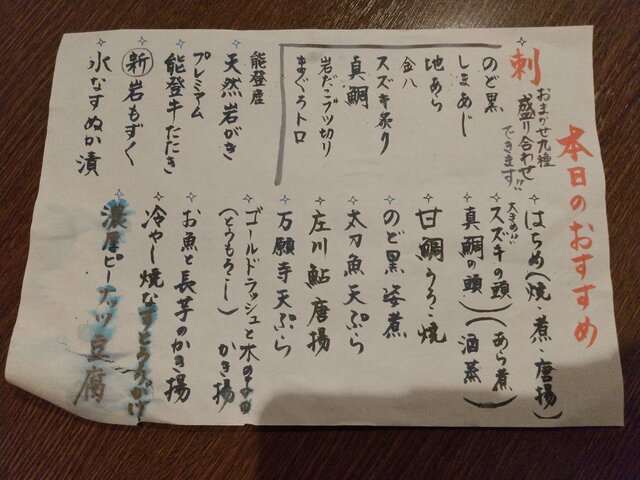 本日のおすすめ
刺
おまかせ九種
盛り合わせ
できます!!
のど黒
しまあじ
地あら
金八
スズキ炙り
真鯛
岩だこブツ切り
まぐろトロ
能登産
天然岩がき
プレミアム
能登牛たたき
新 岩もずく
水なすぬか漬
はちめ(焼・煮・唐揚)
大きめ!!
スズキの頭
真鯛の頭
(あら煮)
(酒蒸)
甘鯛うろこ焼
のど黒姿煮
太刀魚天ぷら
庄川鮎唐揚
万願寺天ぷら
ゴールドラッシュと木の子の
(とうもろこし)
かき揚
お魚と長芋のかき揚
冷やし焼なすとろろがけ
濃厚ピーナッツ豆腐